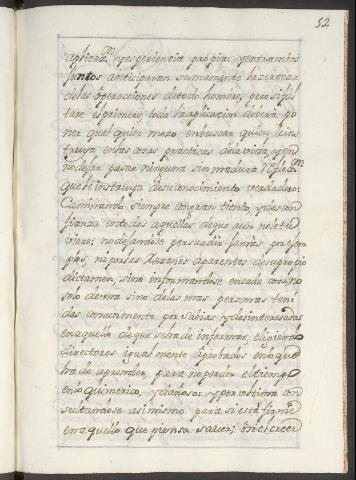 52
aplicaz.on y esperientia propia; y entramôs
juntos anticiparan sumamente la certeza
de las operaciones de todo hombre, pero si fal
tare el primero toda la aplicacion debera po
ner qualquier mozo en buscar quien le ins
truya en las cosas practicas de la vida, y en
no dejar pasar ninguna sin madura reflex.on
que le instruya de su conocimiento verdadero:
Caminando siempre con gran tiento, y descon
fianza en todas aquellas de que aun no le tu
viere; no dejandose persuadir jamàs por ejem
plos, ni por las razones aparentes de su propio
dictamen, sino informandose en cada cosa, no
solo de una sino de las mas personas teni
das comunmente por sabias, y desinteresadas
en aquello de que se ha de informar, eligiendo
directores igualmente aprobados en lo que
ha de aprender, para no perder el tiempo
en lo quimerico, y dañoso: y por ultimo con
sultandose asi mismo para si està firme
en aquello que piensa saver; ò si el creer